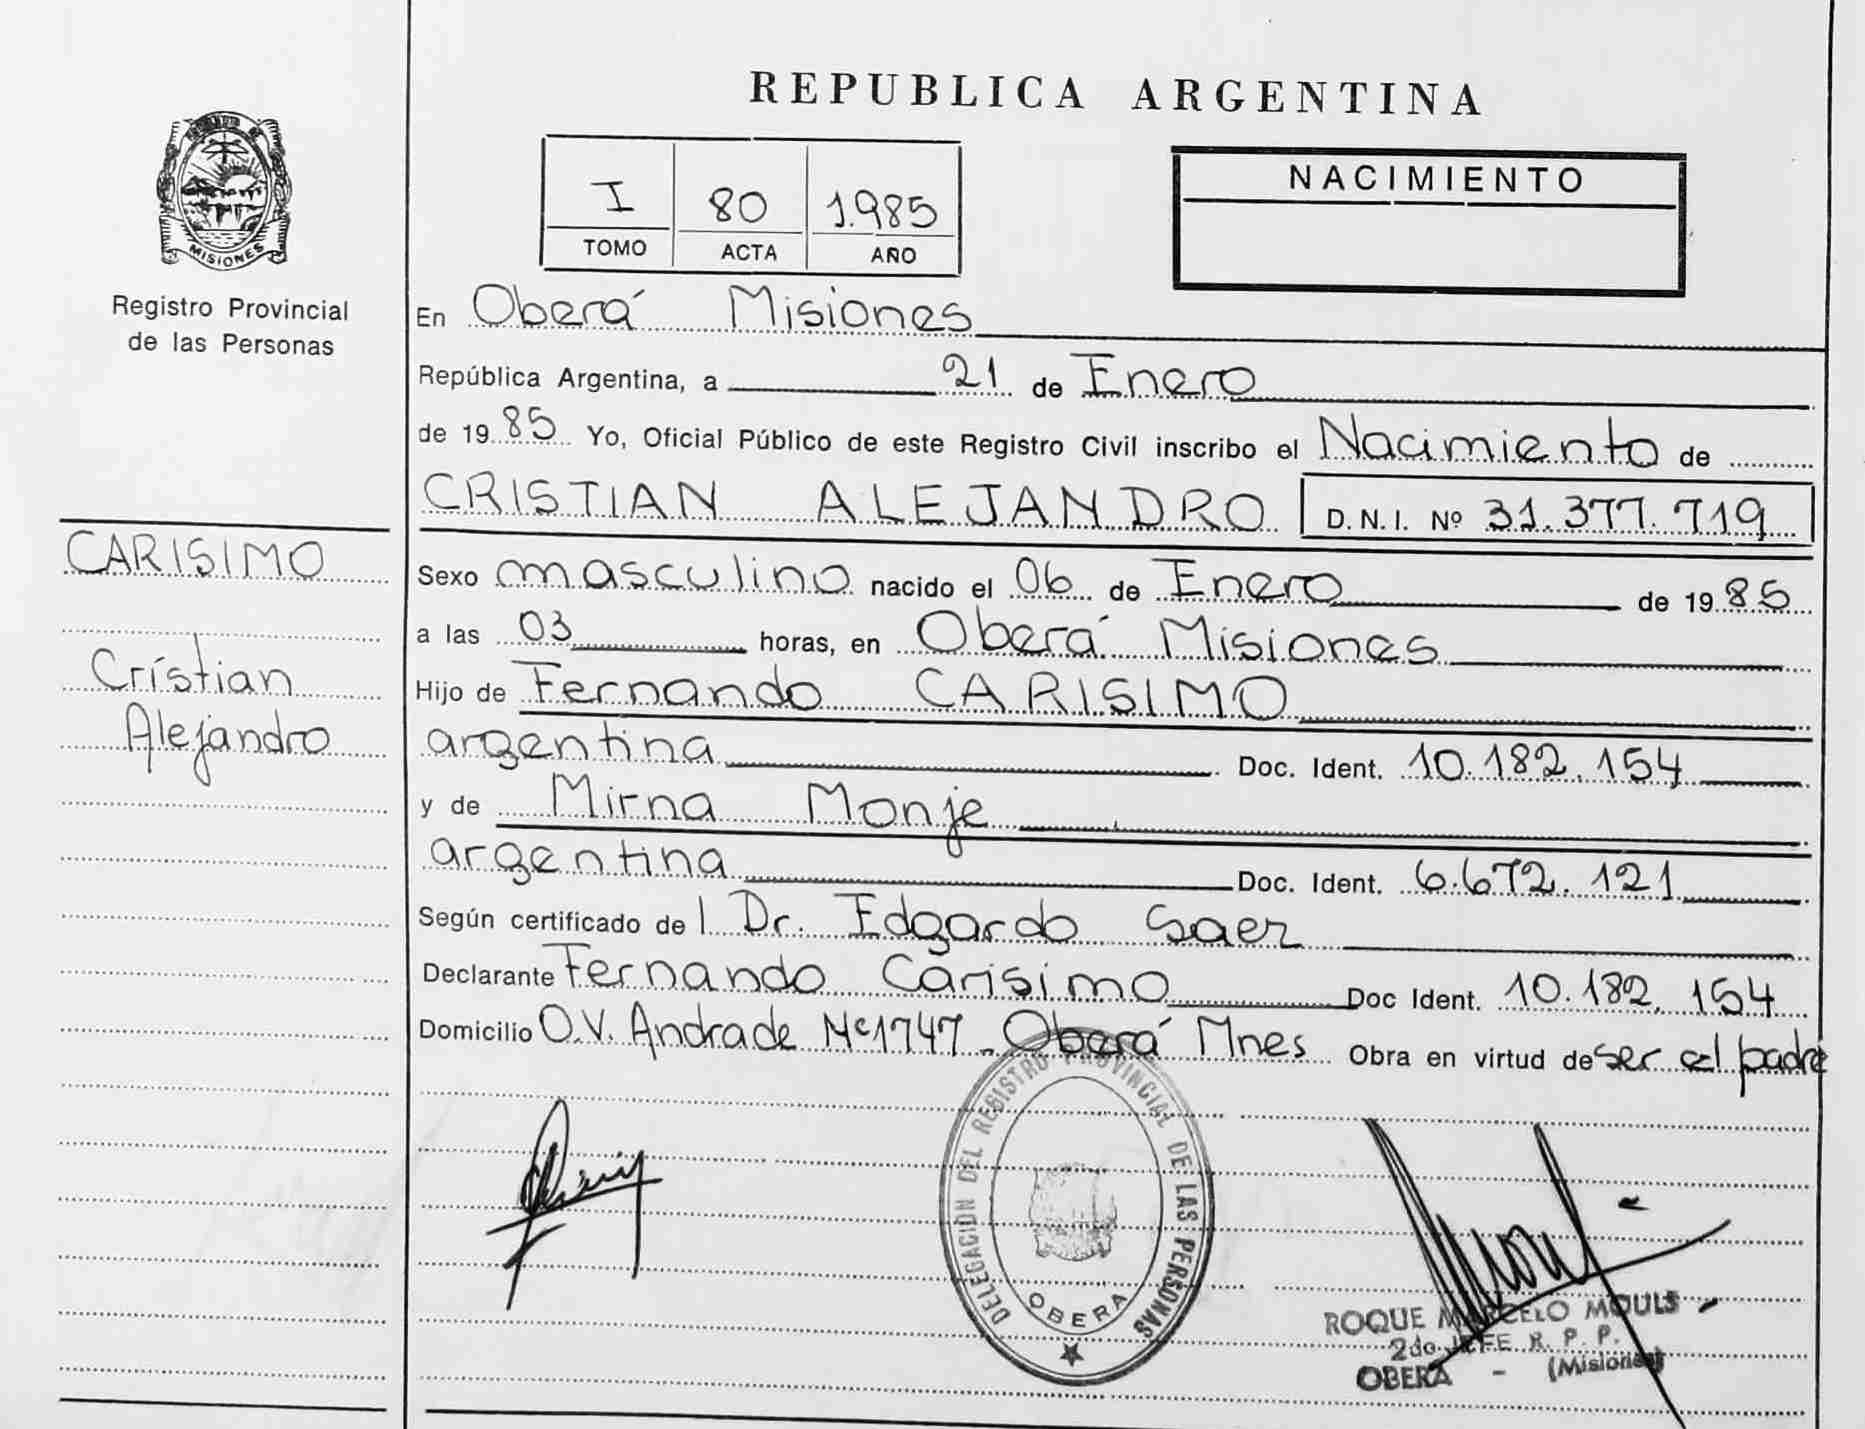 REPUBLICA ARGENTINA
MISIONES
Registro Provincial
de las Personas
I 80 1.985
TOMO ACTA AÑO
NACIMIENTO
En Oberá Misiones
República Argentina, a 21 de Enero
de 1985 Yo, Oficial Público de este Registro Civil inscribo el Nacimiento de
CRISTIAN ALEJANDRO D.N.I. Nº 31.377.719
CARISIMO
Cristian
Alejandro
Sexo masculino nacido el 06 de Enero de 1985
a las 03 horas, en Oberá Misiones
Hijo de Fernando CARISIMO
argentina Doc. Ident. 10.182.154
y de Mirna Monje
argentina Doc. Ident. 6.672.121
Según certificado de l Dr. Edgardo Saez
Declarante Fernando Carisimo Doc Ident. 10.182.154
Domicilio O.V. Andrade Nº 1747 - Oberá Mnes Obra en virtud de ser el padre
DELEGACION DEL REGISTRO PROVINCIAL DE LAS PERSONAS
OBERA
ROQUE MARCELO MOULS
2do JEFE R. P. P.
OBERA - (Misiones)